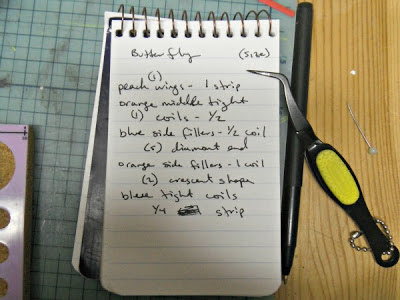 Butterfly (Size)
(1)
peach wings - 1 strip
orange middle tight
(1) coils - 1/2
blue side fillers - 1/2 coil
(5) diamond end
orange side fillers - 1 coil
(2) crescent shape
blue tight coils
1/4 strip